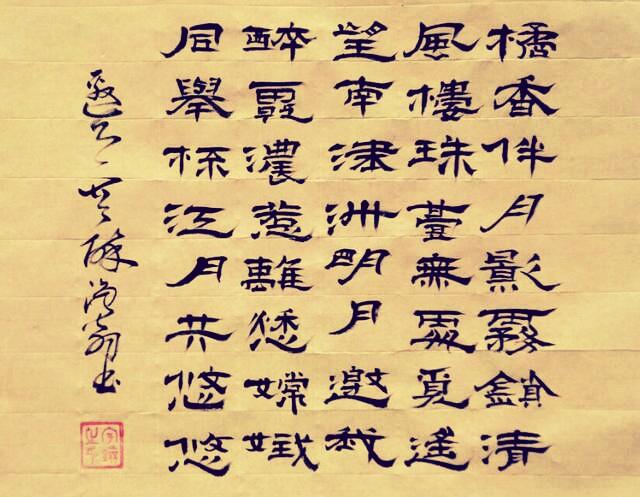 橘香伴月影霧鎖清
風樓珠臺無處覓遙
望南津洲明月邀我
醉霞濃惹離愁嫦娥
同舉杯江月共悠悠